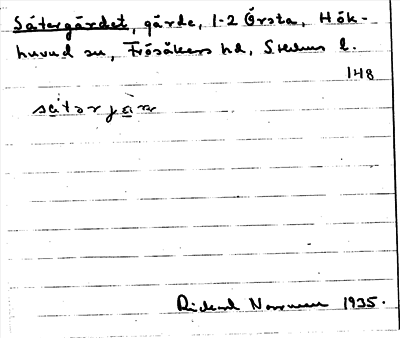 Sätergärdet, gärde, 1-2 Örsta, Hök-
huvud sn, Frösåkers hd, Sthlms l.
148
sætərjæ̀ɳ
Rickard 1935.